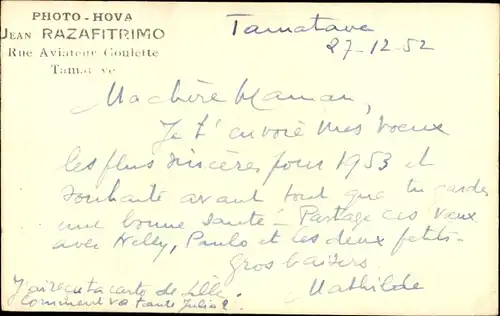 PHOTO-HOVA
JEAN RAZAFITRIMO
Rue Aviateur Goulette
Tamat ve
Tamatave
27-12-52
Ma chère Maman,
Je t'envoie mes voeux
les plus sincères pour 1953 et
souhaite avant tout que tu gardes
une bonne santé - Partage ces voeux
avec Nelly, Paulo et les deux petits-
Gros baisers
Mathilde
J'ai reçu ta carte de Lille.
Comment va tante Julia?